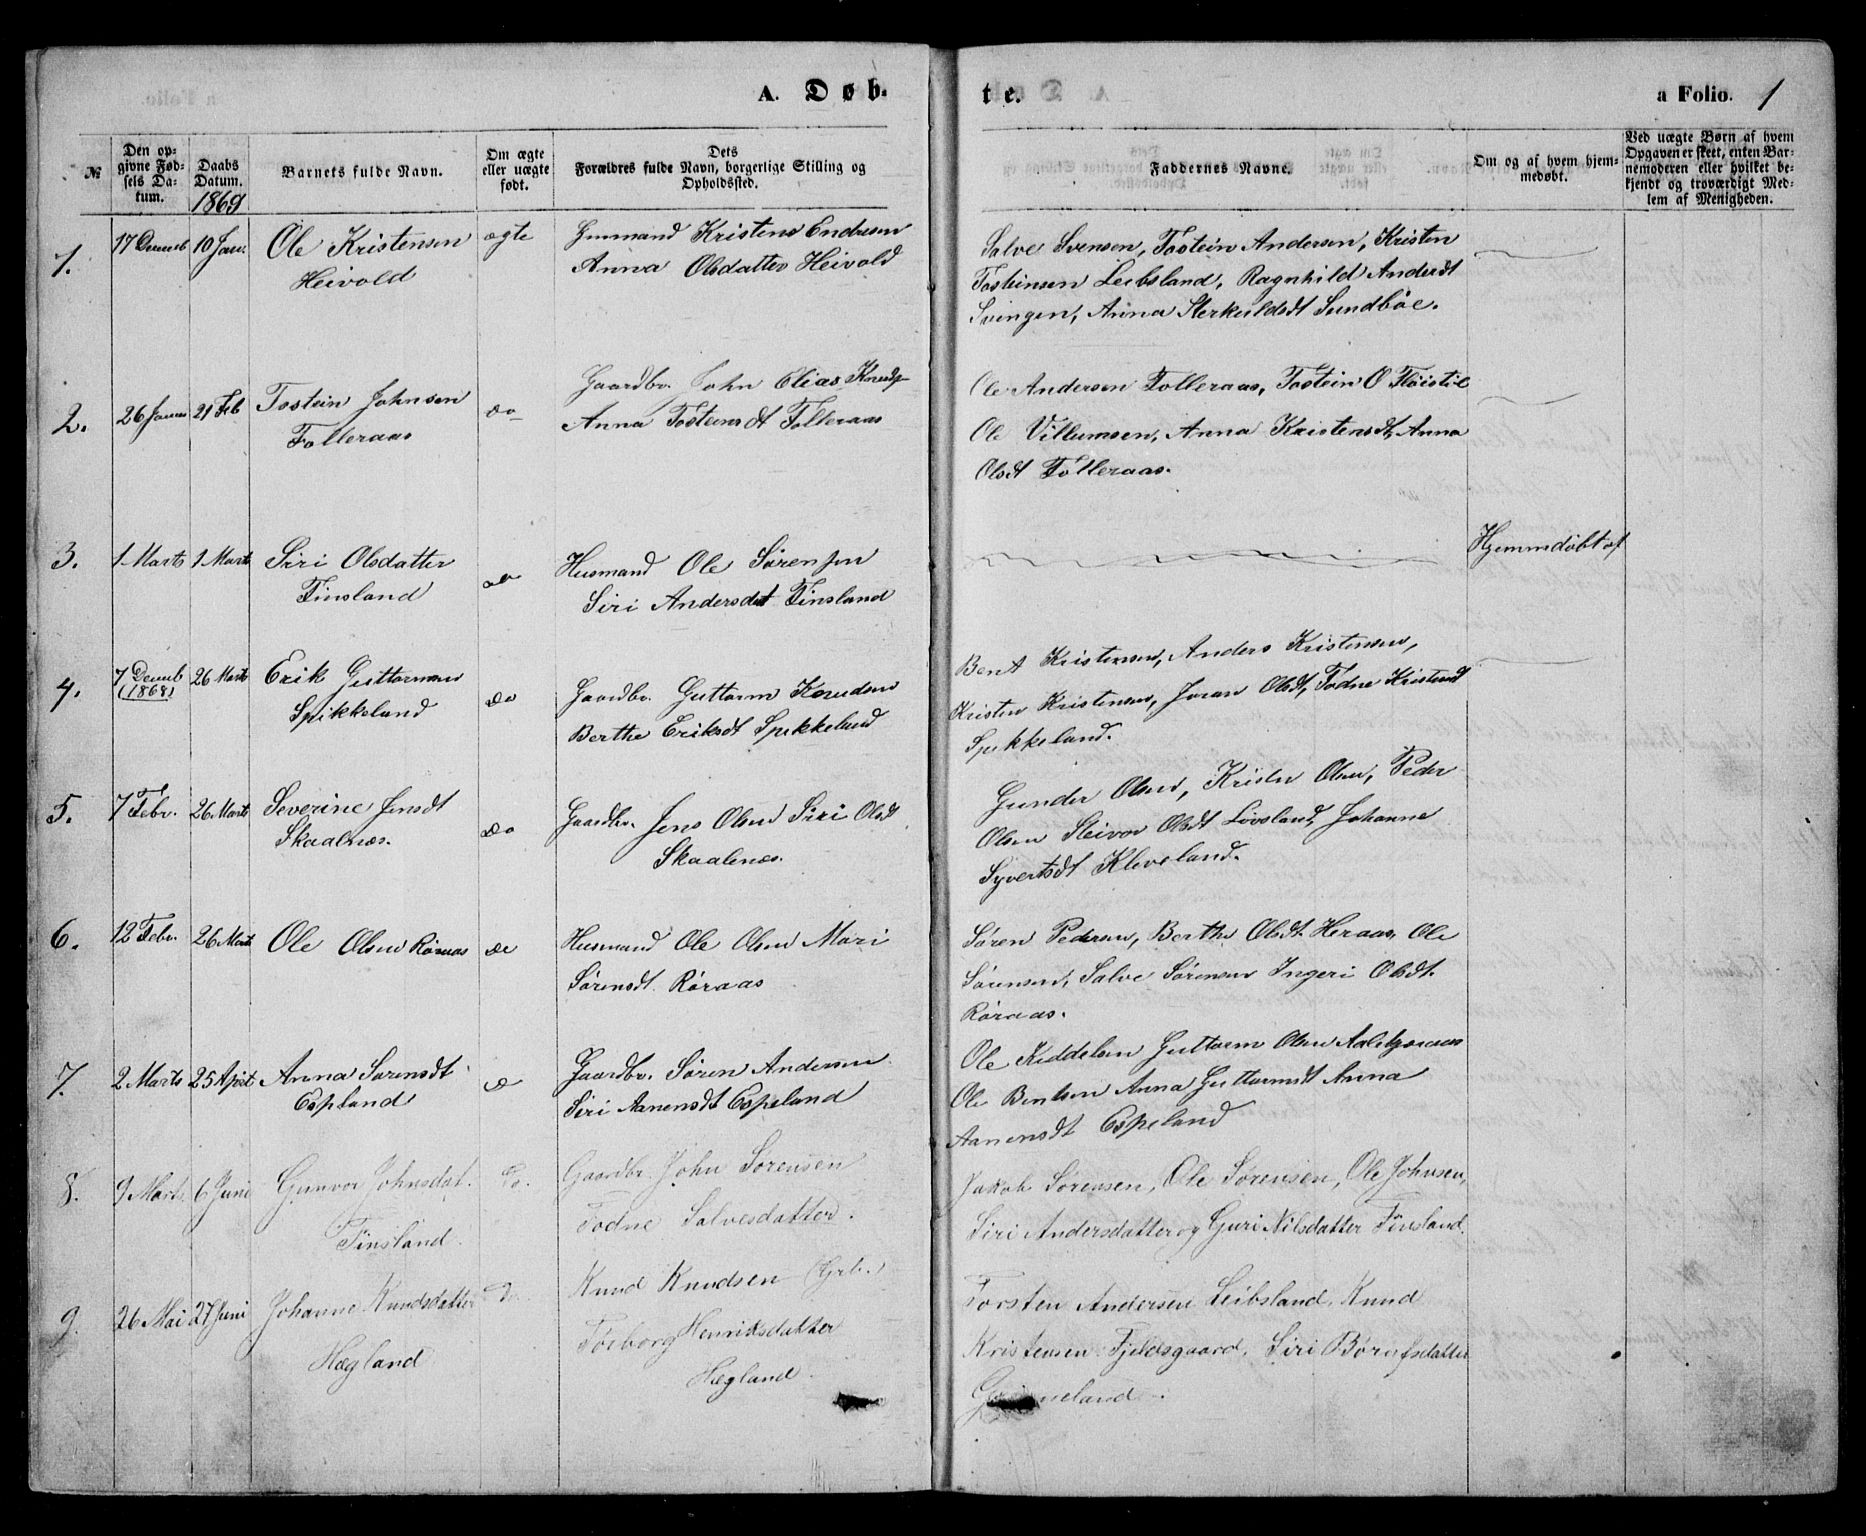 A. Døb-
te.
a Folio. 1
№
Den op-
givne Fød-
sels Da-
tum.
Daabs
Datum.
1869
Barnets fulde Navn.
Om ægte
eller uægte
født.
Dets
Forældres fulde Navn, borgerlige Stilling og
Opholdssted.
Faddernes Navne.
Om og af hvem hjem-
medøbt.
Ved uægte Børn af hvem
Opgaven er skeet, enten Bar-
nemoderen eller hvilket be-
kjendt og troværdigt Med-
lem af Menigheden.
1.
17 Decemb
10 Jan.
Ole Kristensen
Heivold
ægte
Kristens Endresen
Anna Olsdatter Heivold
Salve Svensen, Tostein Andersen, Kristen
Tosteinsen Leibsland, Ragnhild Andersdt
Svingen, Anna Sundbøe.
2.
26 Januar
21 Feb
Tostein Johnsen
Folleraas
do
Gaardbr. John Elias Knuds
Anna Tosteinsdt Folleraas
Ole Andersen Folleraas, Tostein O Fløistøl
Ole Villumsen, Anna Kristensdt, Anna
Olsdt Folleraas.
3.
1 Marts
1 Marts
Siri Olsdatter
Finsland
do
Husmand Ole Sørensen
Siri Andersdat Finsland
Hjemmdøbt af
4.
7 Decemb
(1868)
26 Marts
Erik Guttormsen
Spikkeland
do
Gaardbr. Guttorm Knudsen
Berthe Eriksdt Spikkeland
Bent Kristensen, Anders Kristensen,
Kristen Kristensen, Joran Olsdt, Todne Kristensdt
Spikkeland.
5.
7 Febr.
26 Marts
Severine Jensdt
Skaalnes.
do
Gaardbr. Jens Olsen Siri Olsdt
Skaalenes.
Gunder Olsen, Kristen Olsen, Peder
Olsen Steivor Olsdt Løvsland, Johanne
Syvertsdt Kleveland.
6.
12 Febr.
26 Marts
Ole Olsen Røraas
do
Husmand Ole Olsen Mari
Sørensdt. Røraas
Søren Pedersen, Berthe Olsdt. Heraas, Ole
Sørensen, Salve Sørensen Ingeri Olsdt.
Røraas.
7.
2 Marts
25 April
Anna Sørensdt
Espland
do
Gaardbr. Søren Andersen
Siri Aanensdt Espeland
Ole Keddelsen Guttorm Olsen
Ole Bentsen Anna Guttormsdt Anna
Aanensdt Espeland
8.
9 Marts.
6 Juni
Gunvor Johnsdat.
Finsland.
Do.
Gaardbr. John Sørensen
Todne Salvesdatter.
Jakob Sørensen, Ole Sørensen, Ole Johnsen,
Siri Andersdatter og Guri Nilsdatter Finsland.
9.
26 Mai
27 Juni
Johanne Knudsdatter
Hægland
Do.
Knud Knudsen (Grb.)
Tørborg Henriksdatter
Hægland.
Torsten Andersen Leibsland, Knud
Kristensen Fjeldsgaard, Siri